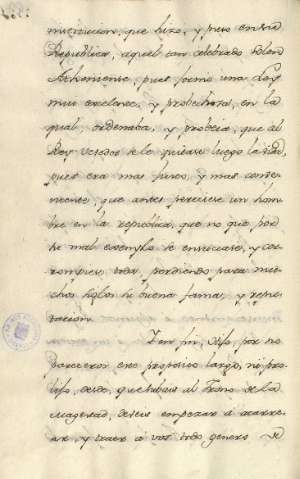 institucion, que hizo, y puso en su
Republica, aquel tan celebrado Solon
Atheniense, pues formó una Ley
mui exelente, y probechosa, en la
qual, ordenaba, y probeia, que al
Rey se le quitase luego la vida,
pues era mas justo, y mas conbe-
niente, que antes pereciese un hom-
bre en la republica, que no que por
su mal exemplo se enviciase, y co-
rrompiese toda, perdiendo para mu-
chos siglos su buena fama, y repu-
tacion.
Y en fin, digo, por no
pareceros este proposito largo, ni pro-
lijo, que subais al Trono de la
Magestad, deveis empezar á acarre-
ar, y traer á vos todo genero de